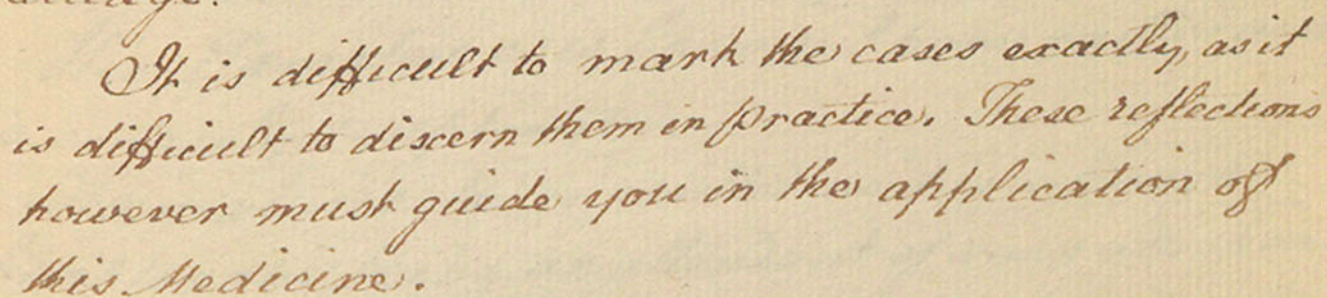 It is difficult to mark the cases exactly, as it
is difficult to discern them in practice. These reflections
however must guide you in the application of
this Medicine.